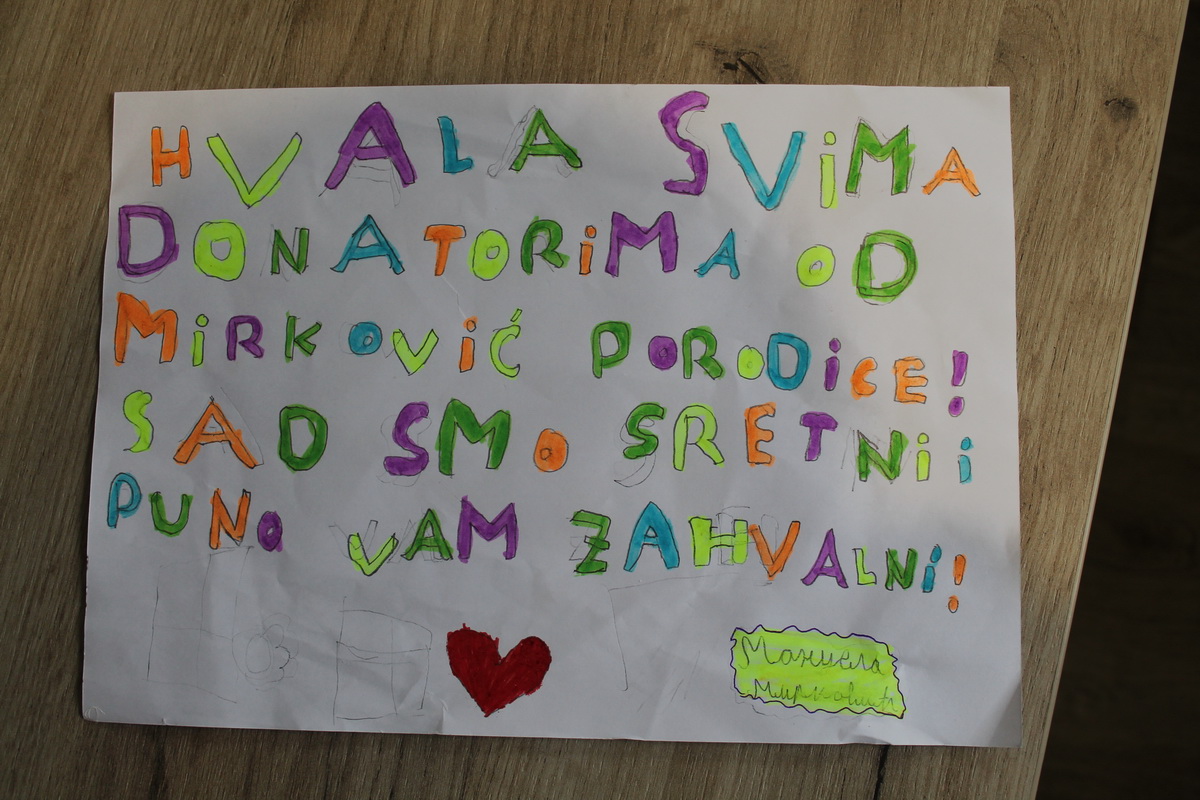 HVALA SViMA
DONATORiMA OD
MiRKOViĆ PORODiCE!
SAD SMO SRETNi i
PUNO VAM ZAHVALNi!
Мануела
Мирковић